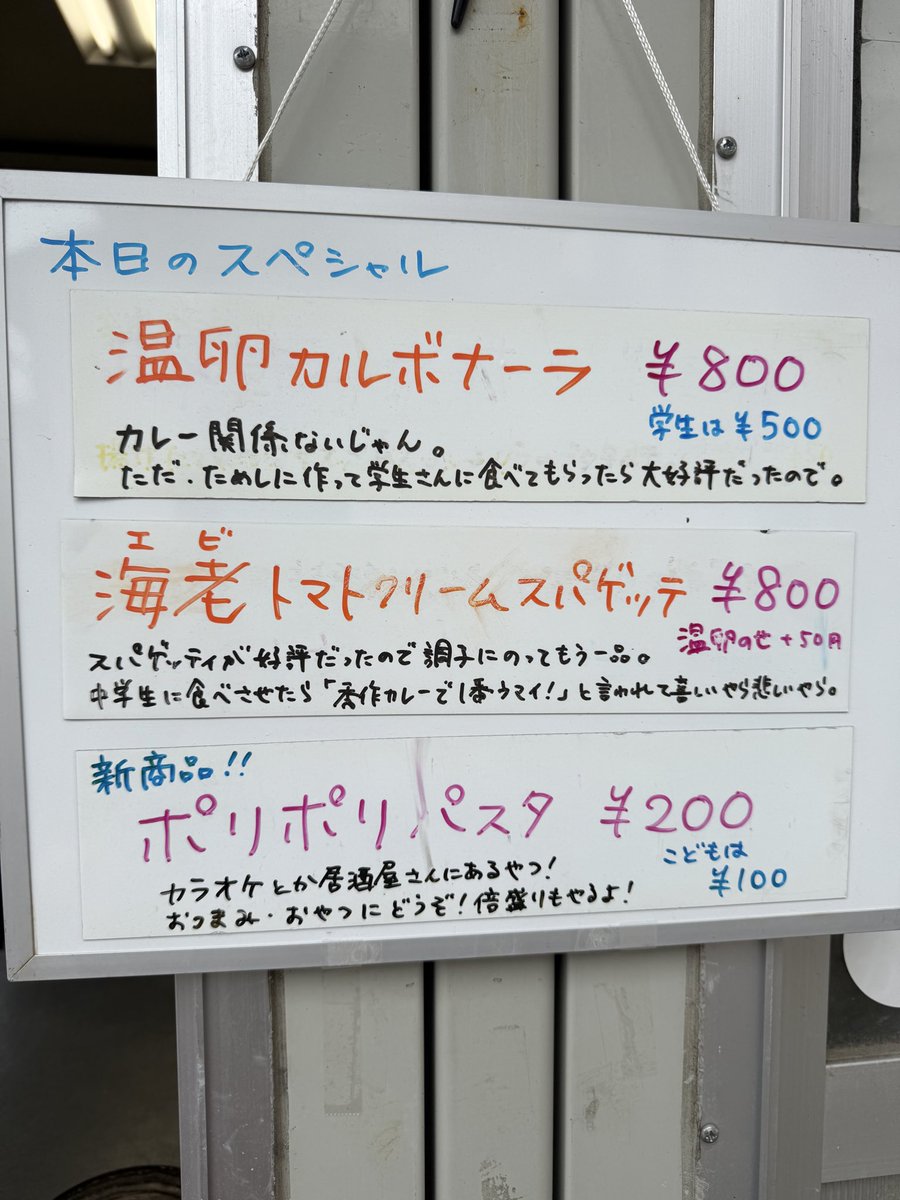 本日のスペシャル
温卵カルボナーラ ¥800
学生は¥500
カレー関係ないじゃん。
ただ・ためしに作って学生さんに食べてもらったら大好評だったので。
エビ
海老トマトクリームスパゲッテ ¥800
温卵のせ+50円
スパゲッティが好評だったので調子にのってもう一品。
中学生に食べさせたら「秀作カレーで1番ウマイ!」と言われて喜いやら悲いやら。
新商品!!
ポリポリパスタ ¥200
こどもは
¥100
カラオケとか居酒屋さんにあるやつ!
おつまみ・おやつにどうぞ!倍盛りもやるよ!